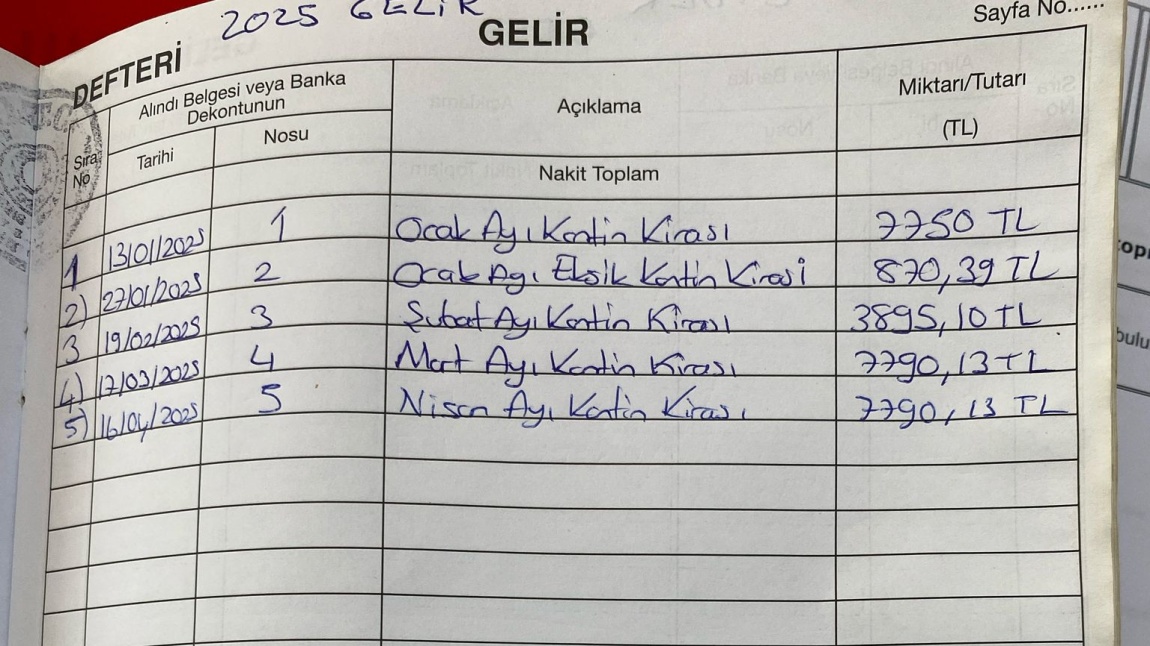 2025 GELİR
DEFTERİ
GELİR
Sayfa No......
Sıra No
Alındı Belgesi veya Banka Dekontunun
Tarihi
Nosu
Açıklama
Miktarı/Tutarı
(TL)
Nakit Toplam
1 13/01/2025 1 Ocak Ayı Kantin Kirası 7750 TL
2) 27/01/2025 2 Ocak Ayı Eksik Kantin Kirasi 870,39 TL
3 19/02/2025 3 Şubat Ayı Kantin Kirası 3895,10 TL
4) 17/03/2025 4 Mart Ayı Kantin Kirası 7790,13 TL
5) 16/04/2025 5 Nisan Ayı Kantin Kirası 7790,13 TL